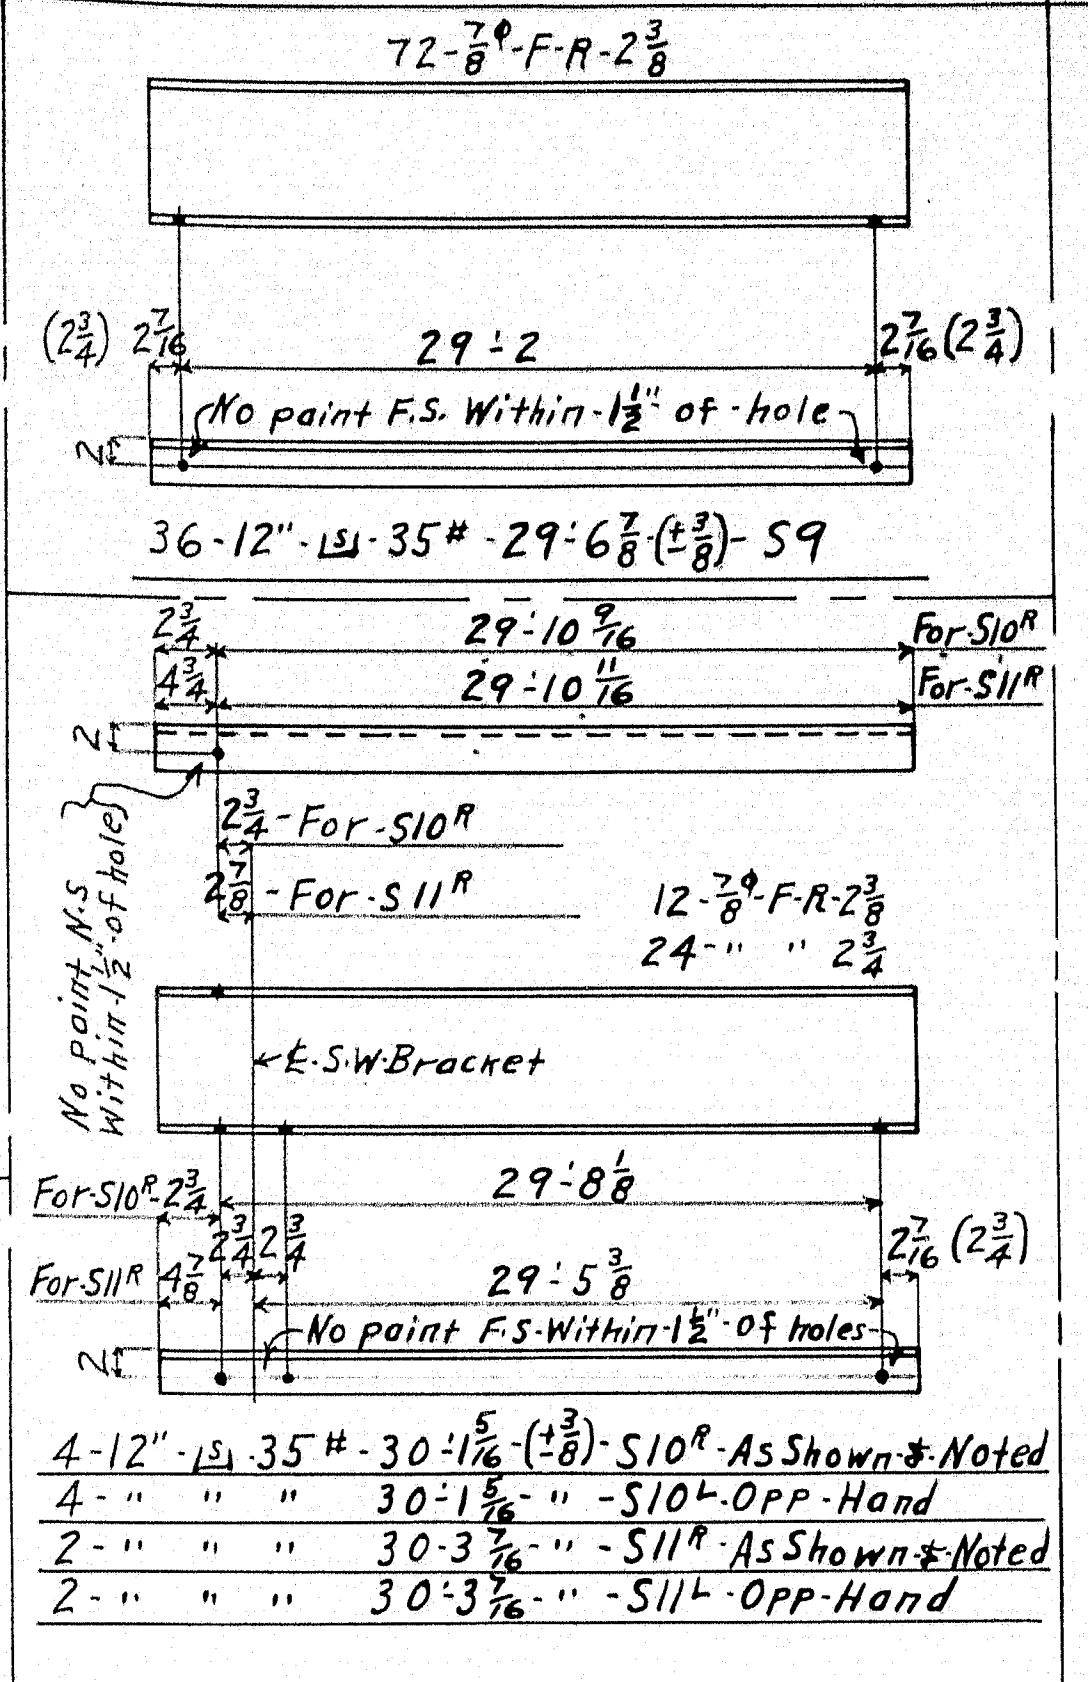 72-7/8φ-F-R-2 3/8
(2 3/4) 2 7/16 29'-2 2 7/16 (2 3/4)
No paint F.S. Within-1 1/2" of-hole
2
36-12"-⌊s⌋-35#-29'-6 7/8-(±3/8)-S9
2 3/4 29'-10 9/16 For-S10R
4 3/4 29'-10 11/16 For-S11R
2
No paint N.S
Within-1 1/2"-of hole
2 3/4-For-S10R
2 7/8-For-S11R
12-7/8φ-F-R-2 3/8
24-" " 2 3/4
S.W.Bracket
For-S10R-2 3/4 29'-8 1/8
2 3/4 2 3/4 2 7/16 (2 3/4)
For-S11R 4 7/8 29'-5 3/8
No paint F.S-Within-1 1/2"-of holes
2
4-12"-⌊s⌋-35#-30'-1 5/16-(±3/8)-S10R-As Shown-&-Noted
4-" " " 30'-1 5/16-"-S10L-OPP-Hand
2-" " " 30-3 7/16-"-S11R-As Shown-&-Noted
2-" " " 30'-3 7/16-"-S11L-OPP-Hand